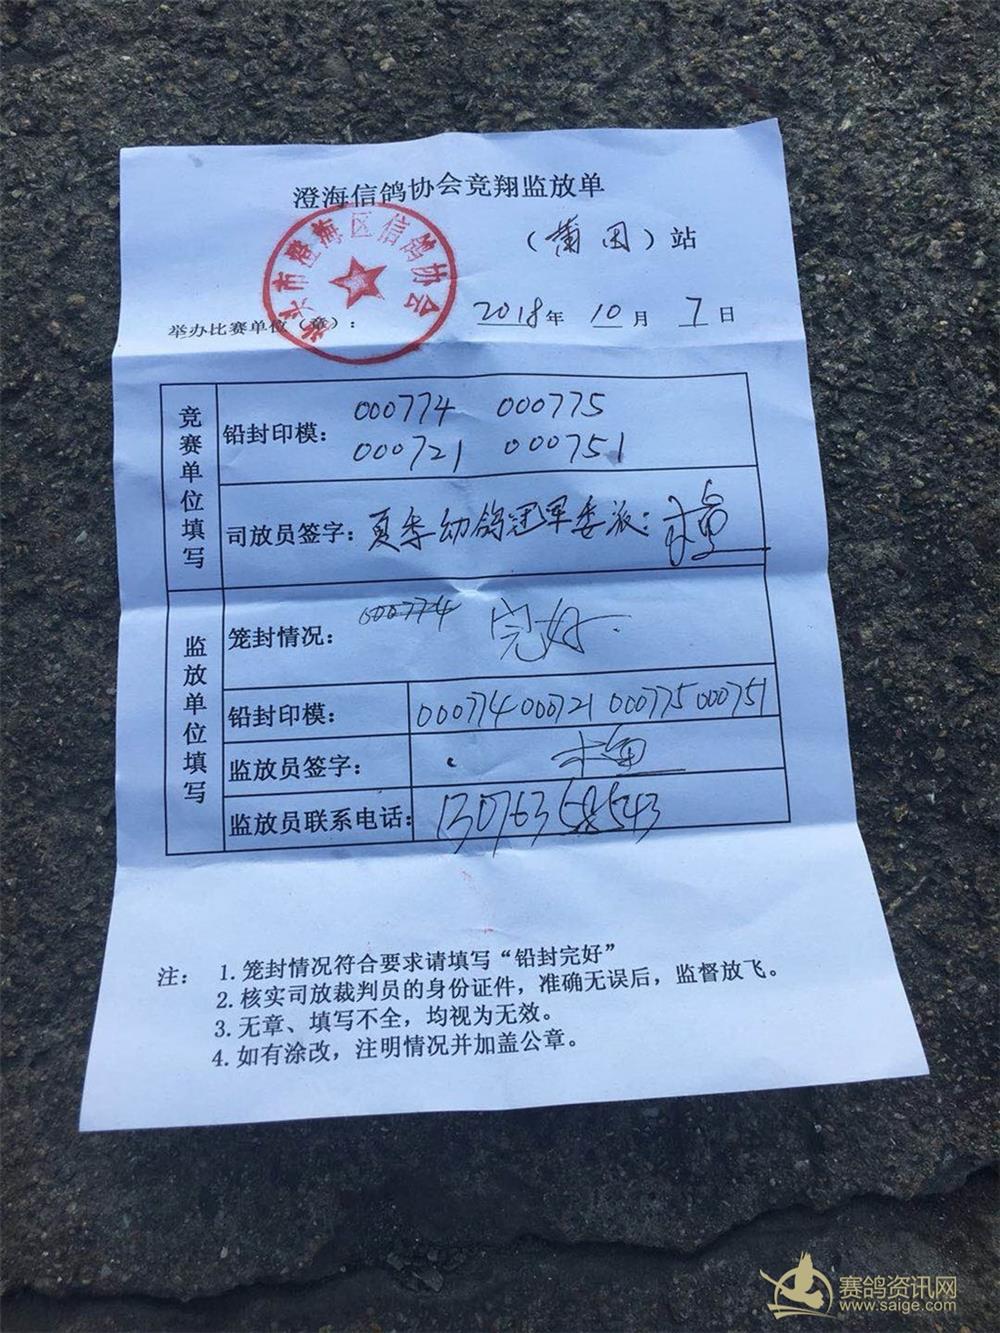 澄海信鸽协会竞翔监放单
（莆田）站
汕头市澄海区信鸽协会
举办比赛单位（章）：
2018年 10月 7日
竞赛单位填写
铅封印模：
000774 000775
000721 000751
司放员签字：夏季幼鸽冠军委派：
监放单位填写
笼封情况：
000774 完好.
铅封印模：
000774 000721 000775 000751
监放员签字：
监放员联系电话：
注：
1. 笼封情况符合要求请填写“铅封完好”
2. 核实司放裁判员的身份证件，准确无误后，监督放飞。
3. 无章、填写不全，均视为无效。
4. 如有涂改，注明情况并加盖公章。
赛鸽资讯网
www.saige.com